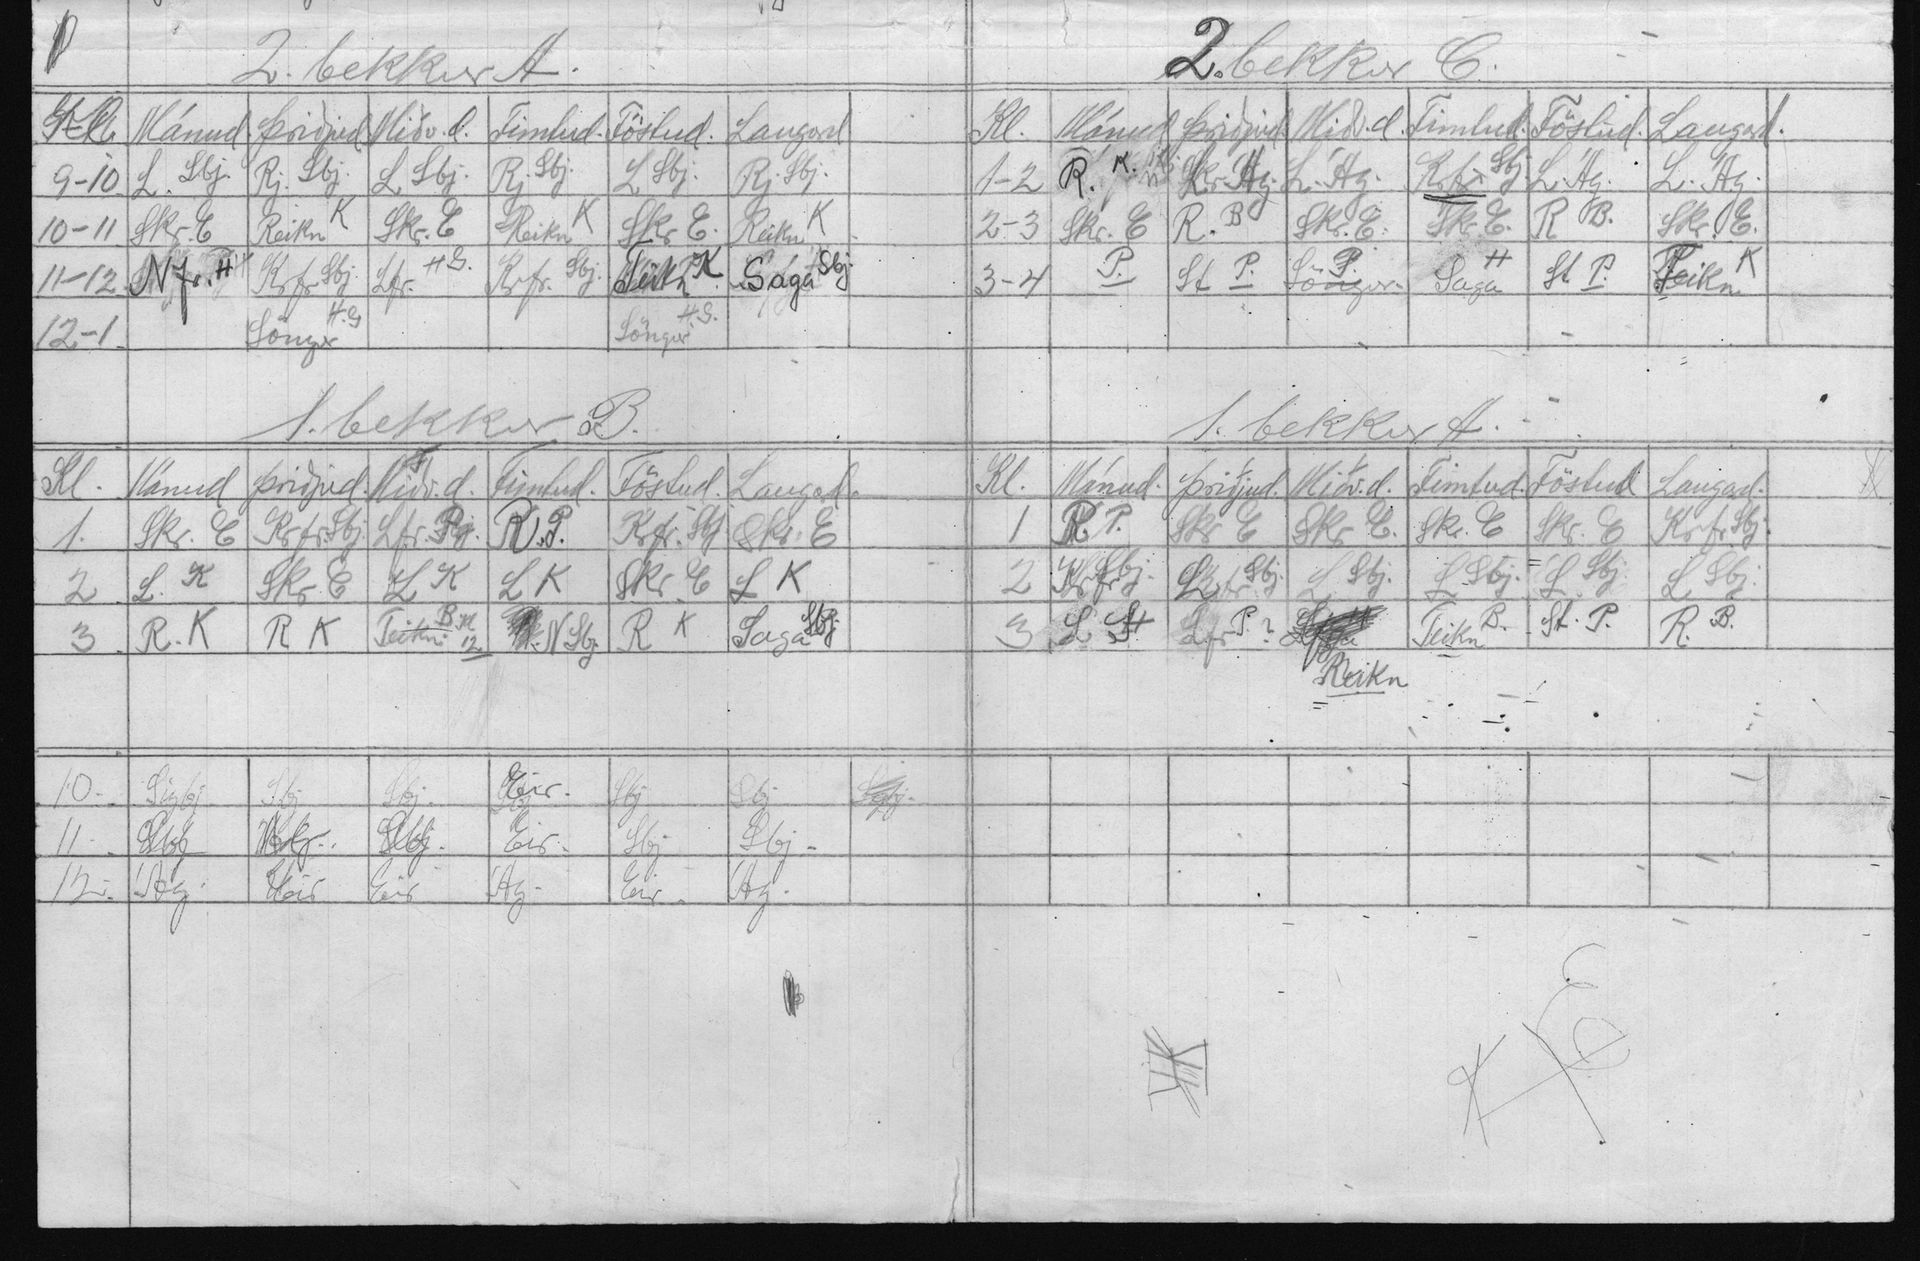 2. bekkur A.
Kl. Mánud. Þriðjud. Miðv.d. Fimtud. Föstud. Laugard
9-10 L. Sbj. Rj. Sbj. L Sbj. Rj. Sbj. L Sbj. Rj. Sbj.
10-11 Skr. E Reikn K Skr. E Reikn K Skr. E. Reikn K
11-12 Nfr. H Krfr Sbj. Lfr. H.G. Krfr. Sbj. Teikn K. Saga Sbj.
12-1 Söngur H.G Söngur H.G.
2. bekkur C.
Kl. Mánud Þriðjud Miðv.d Fimtud. Föstud. Laugard.
1-2 R. K. Skr. Ág. L. Ág. Krfr Sbj. L. Ág. L. Ág.
2-3 Skr. E R. B Skr. E. Skr. E. R B. Skr. E.
3-4 P. St P. Söngur P. Saga H St P. Teikn K
1. bekkur B.
Kl. Mánud Þriðjud. Miðv.d. Fimtud. Föstud. Laugard.
1. Skr. E Krfr. Sbj. Lfr. R. P. Krfr. Sbj Skr. E
2 L. K Skr. E L K L K Skr. E L K
3 R. K R K Teikn. B. 12 N Sbj R K Saga Sbj
1. bekkur A.
Kl. Mánud. Þriðjud. Miðv.d. Fimtud. Föstud Laugard.
1 R. P. Skr E Skr E. Skr. E Skr. E Krfr Sbj.
2 Krfr Sbj. Sbj. L Sbj. L Sbj. L Sbj. L Sbj.
3 L Lfr P. ? Teikn B. St. P. R. B.
Reikn
10. Sigbj Sbj Sbj. Eir. Sbj Sbj
11 Sbj Sbj. Eir. Sbj Sbj.
12. Ág. Eir Eir Ág. Eir. Ág.